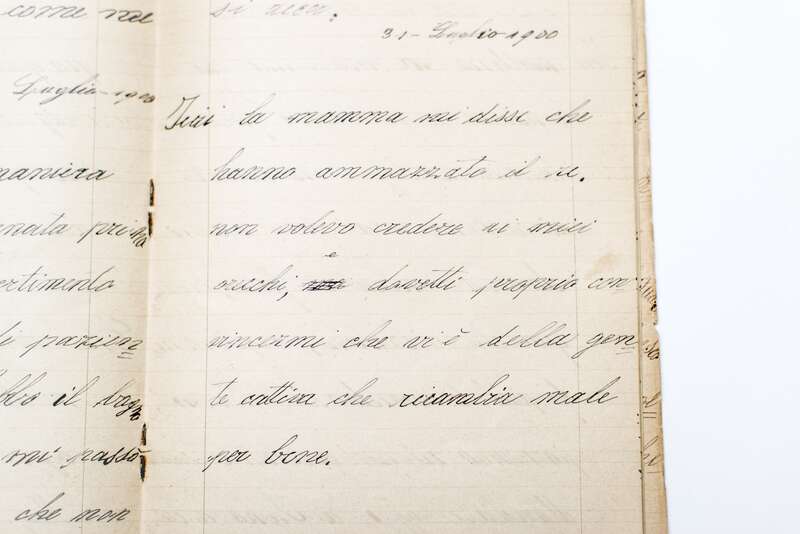 come me
Luglio-1900
maniera
nata prima
ertimento
di pazien
bbo il bagno
mi passò
che non
si
31-Luglio-1900
Ieri la mamma mi disse che
hanno ammazzato il re.
non volevo credere ai miei
e
orecchi, ma dovetti proprio con
vincermi che vi è della gen
te cattiva che ricambia male
per bene.